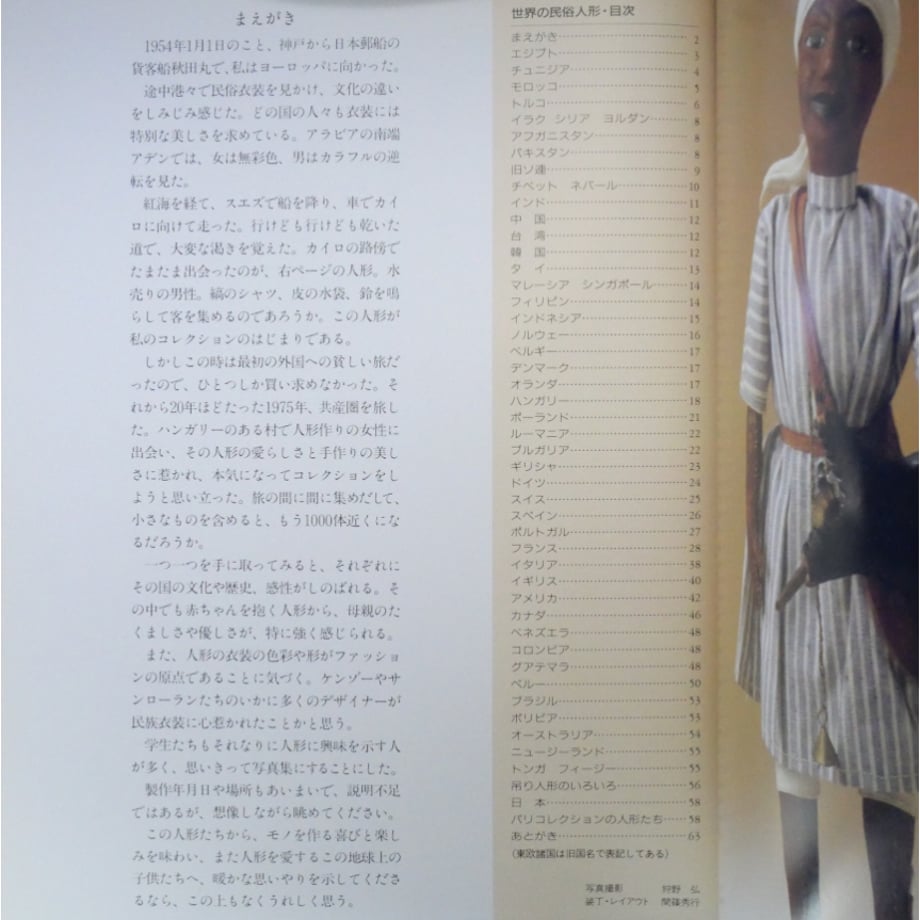 まえがき
1954年1月1日のこと、神戸から日本郵船の
貨客船秋田丸で、私はヨーロッパに向かった。
途中港々で民俗衣装を見かけ、文化の違い
をしみじみ感じた。どの国の人々も衣装には
特別な美しさを求めている。アラビアの南端
アデンでは、女は無彩色、男はカラフルの逆
転を見た。
紅海を経て、スエズで船を降り、車でカイ
ロに向けて走った。行けども行けども乾いた
道で、大変な渇きを覚えた。カイロの路傍で
たまたま出会ったのが、右ページの人形。水
売りの男性。縞のシャツ、皮の水袋、鈴を鳴
らして客を集めるのであろうか。この人形が
私のコレクションのはじまりである。
しかしこの時は最初の外国への貧しい旅だ
ったので、ひとつしか買い求めなかった。そ
れから20年ほどたった1975年、共産圏を旅し
た。ハンガリーのある村で人形作りの女性に
出会い、その人形の愛らしさと手作りの美し
さに惹かれ、本気になってコレクションをし
ようと思い立った。旅の間に間に集めだして、
小さなものを含めると、もう1000体近くにな
るだろうか。
一つ一つを手に取ってみると、それぞれに
その国の文化や歴史、感性がしのばれる。そ
の中でも赤ちゃんを抱く人形から、母親のた
くましさや優しさが、特に強く感じられる。
また、人形の衣装の色彩や形がファッショ
ンの原点であることに気づく。ケンゾーやサ
ンローランたちのいかに多くのデザイナーが
民族衣装に心惹かれたことかと思う。
学生たちもそれなりに人形に興味を示す人
が多く、思いきって写真集にすることにした。
製作年月日や場所もあいまいで、説明不足
ではあるが、想像しながら眺めてください。
この人形たちから、モノを作る喜びと楽し
みを味わい、また人形を愛するこの地球上の
子供たちへ、暖かな思いやりを示してくださ
るなら、この上もなくうれしく思う。
世界の民俗人形・目次
まえがき……2
エジプト……3
チュニジア……4
モロッコ……5
トルコ……6
イラク シリア ヨルダン……8
アフガニスタン……8
パキスタン……8
旧ソ連……9
チベット ネパール……10
インド……11
中 国……12
台 湾……12
韓 国……12
タ イ……13
マレーシア シンガポール……14
フィリピン……14
インドネシア……15
ノルウェー……16
ベルギー……17
デンマーク……17
オランダ……17
ハンガリー……18
ポーランド……21
ルーマニア……22
ブルガリア……22
ギリシャ……23
ドイツ……24
スイス……25
スペイン……26
ポルトガル……27
フランス……28
イタリア……38
イギリス……40
アメリカ……42
カナダ……46
ベネズエラ……48
コロンビア……48
グアテマラ……48
ペルー……50
ブラジル……53
ボリビア……53
オーストラリア……54
ニュージーランド……55
トンガ フィージー……55
吊り人形のいろいろ……56
日 本……58
パリコレクションの人形たち……58
あとがき……63
(東欧諸国は旧国名で表記してある)
写真撮影 狩野 弘
装丁・レイアウト 間篠秀行